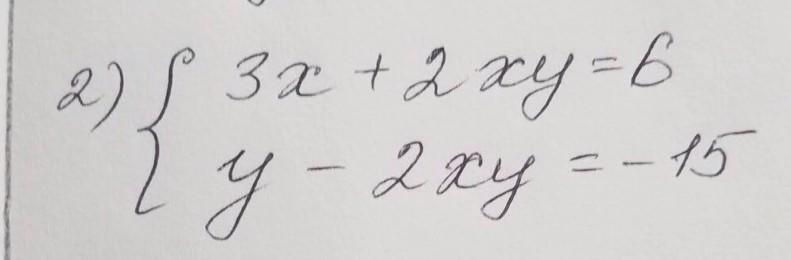 2) { 3x + 2xy = 6
y - 2xy = -15